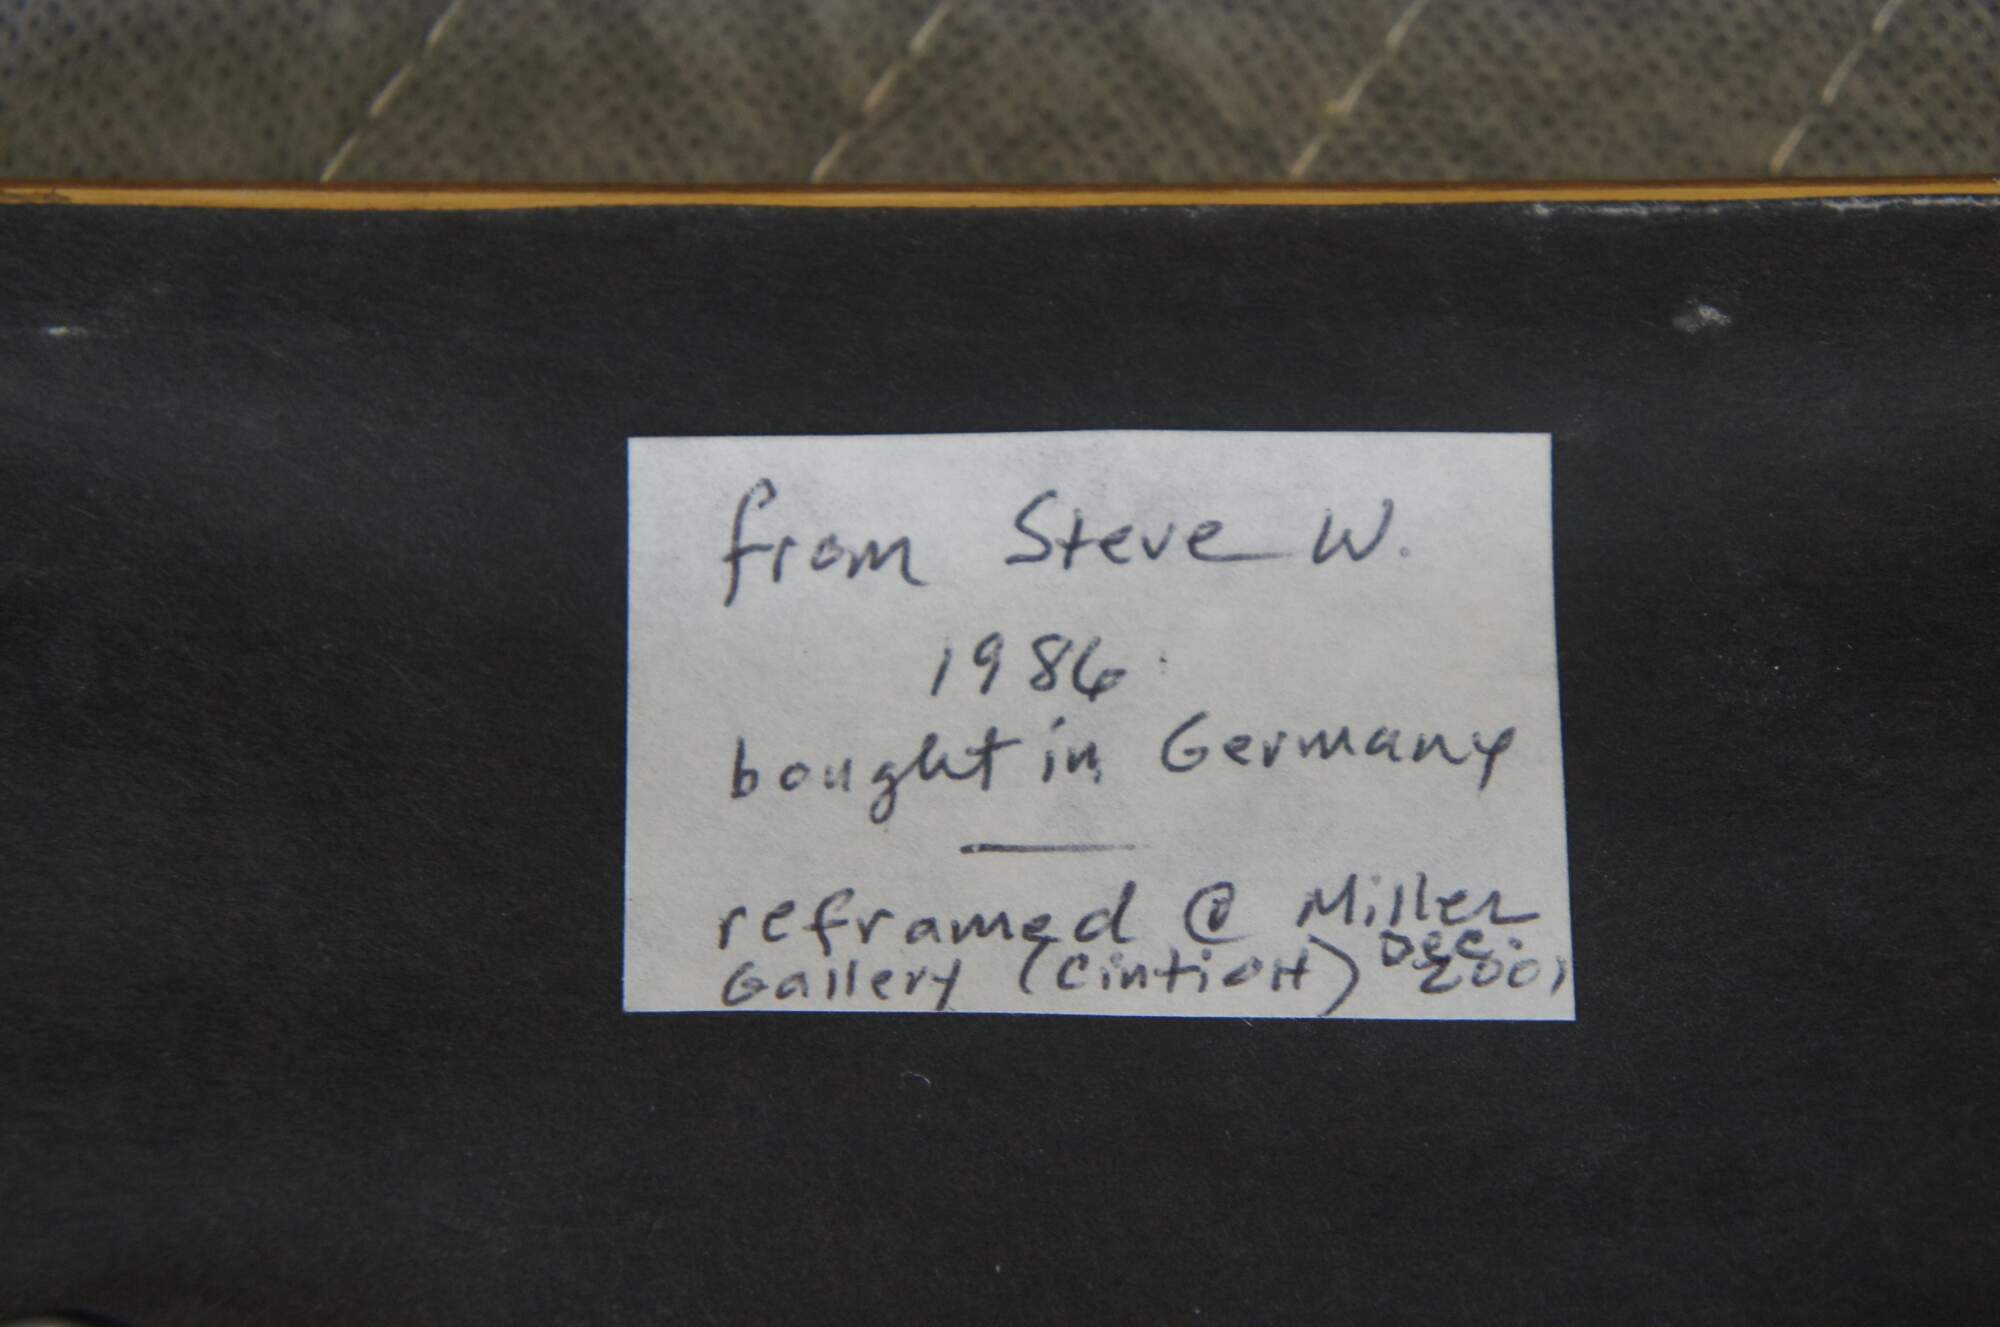 from Steve W.
1986
bought in Germany
reframed @ Miller
Gallery (CintiOH) Dec. 2001